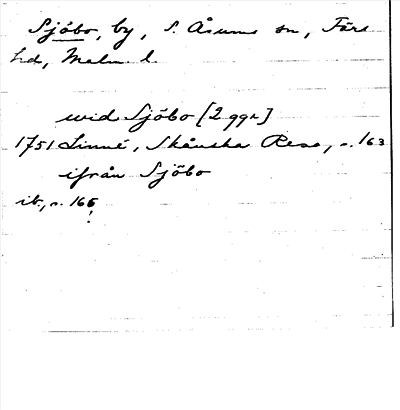 Sjöbo, by, S. Åsums sn, Färs
hd, Malm. l.
wid Sjöbo [2 ggr]
1751 Linné, Skånska Resa, s. 163
ifrån Sjöbo
ib., s. 166
!